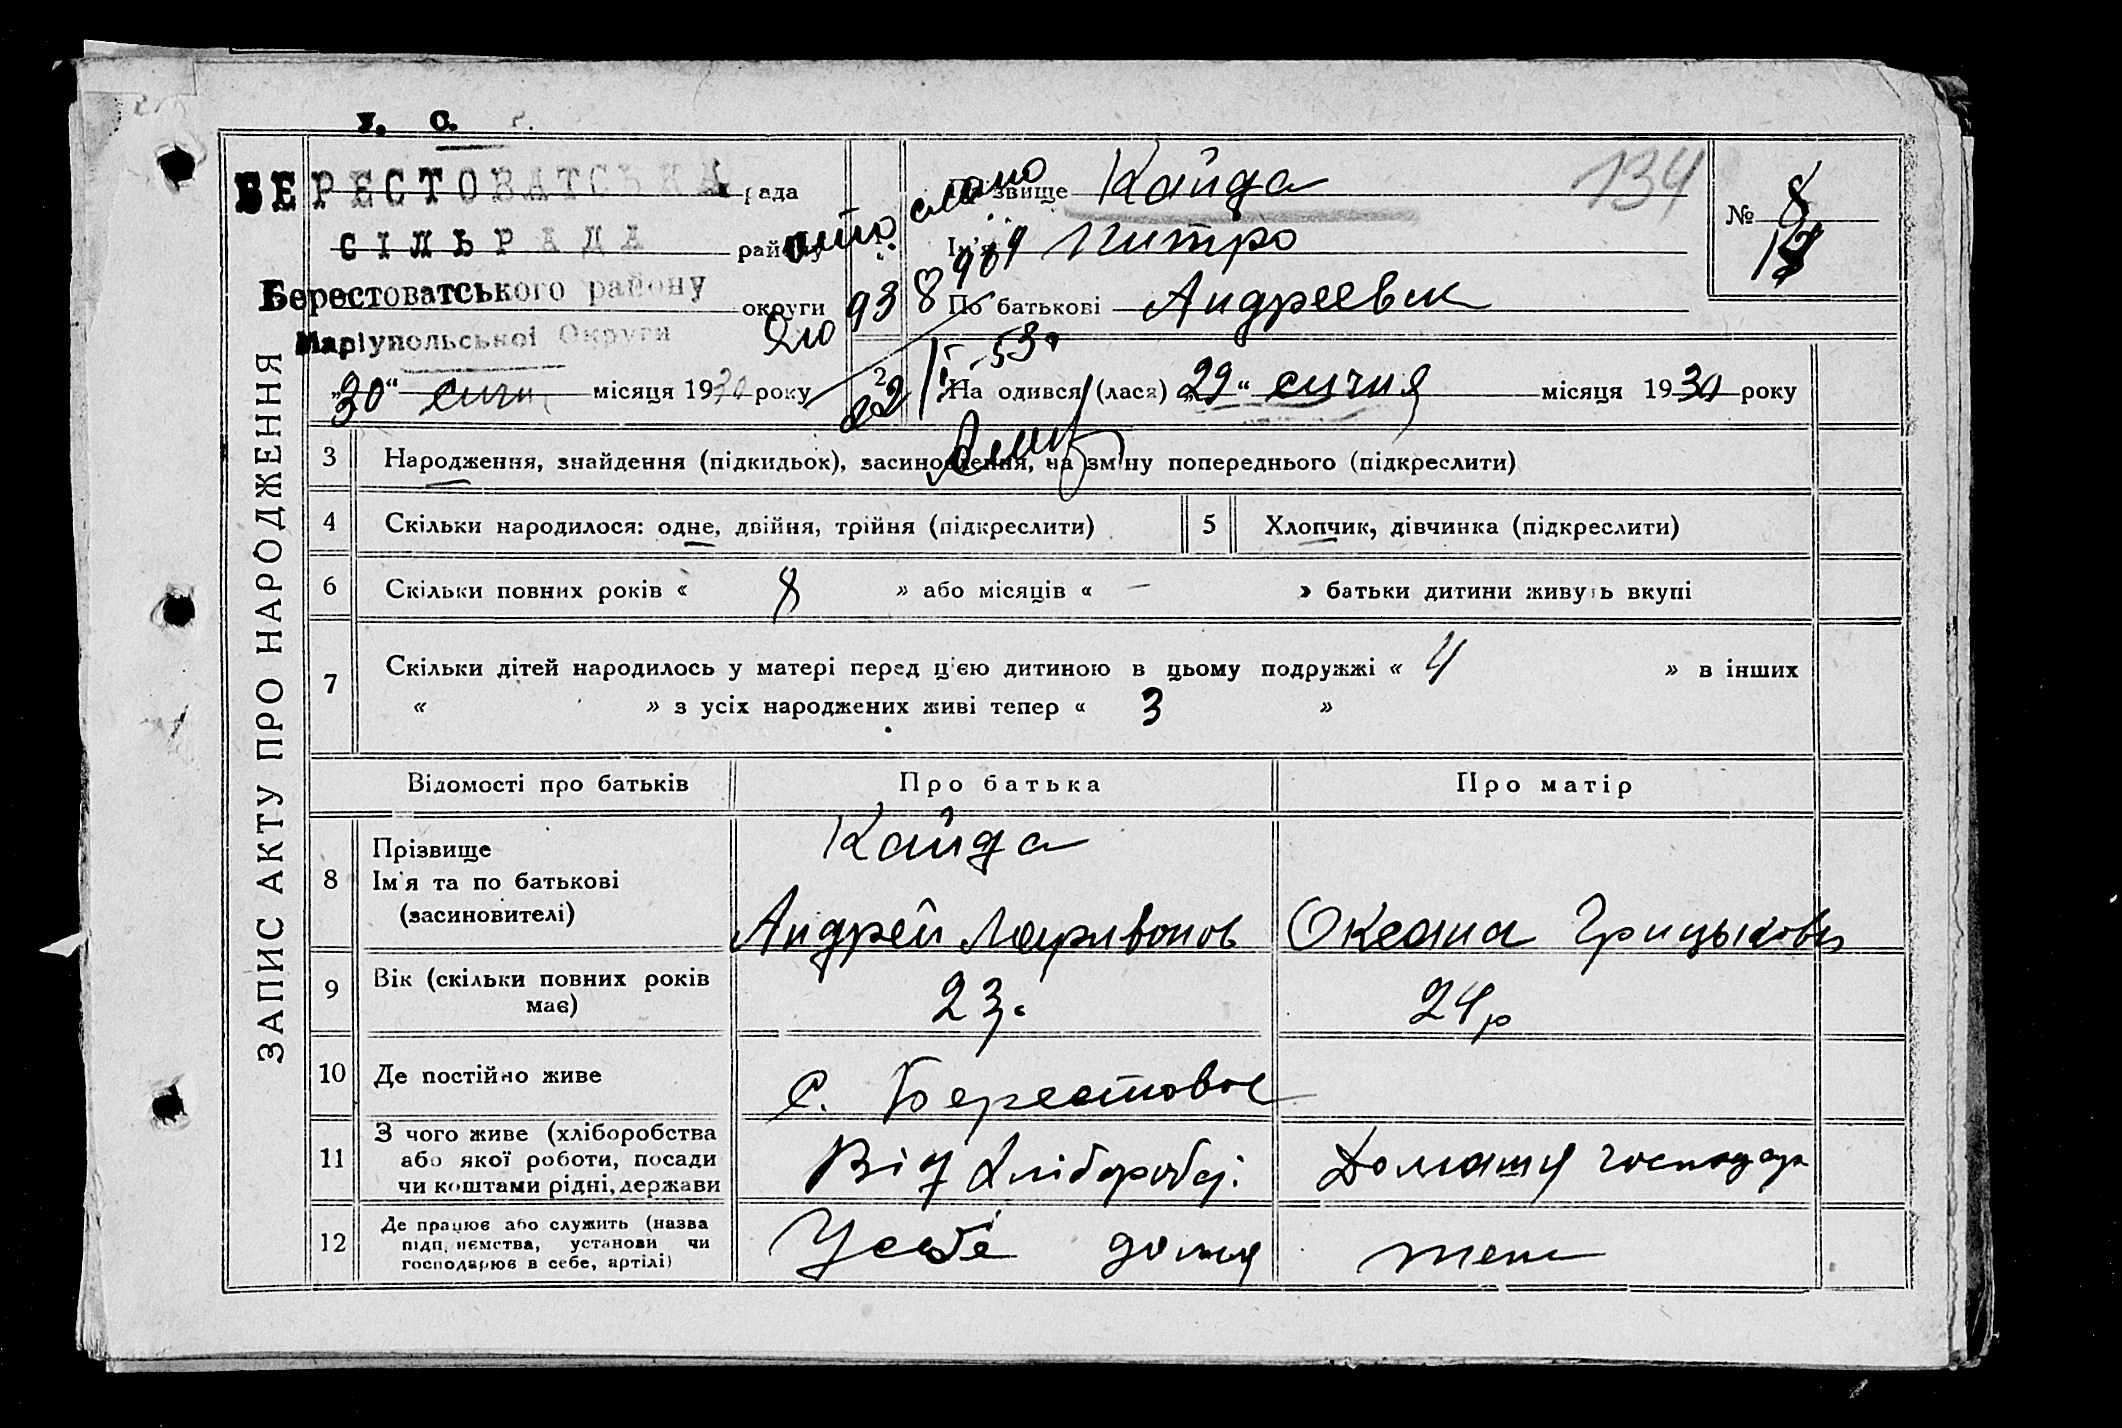 У. С. Р.
БЕРЕСТОВАТСЬКА рада
СІЛЬРАДА району
Берестоватського району округи
Маріупольської Округи
„30“ січн місяця 1930 року
Прізвище Кайда
134
№ 8
Ім'я Митро
По батькові Андреевич
2
На одився (лася) „29“ сичня місяця 1930 року
ЗАПИС АКТУ ПРО НАРОДЖЕННЯ
3 Народження, знайдення (підкидьок), засиновлення, на зміну попереднього (підкреслити)
4 Скільки народилося: одне, двійня, трійня (підкреслити) 5 Хлопчик, дівчинка (підкреслити)
6 Скільки повних років « 8 » або місяців « — » батьки дитини живуть вкупі
7 Скільки дітей народилось у матері перед ц'єю дитиною в цьому подружжі « 4 » в інших
« » з усіх народжених живі тепер « 3 »
Відомості про батьків Про батька Про матір
8 Прізвище
Ім'я та по батькові
(засиновителі)
Кайда
Андрей Ларивонов
Оксана Грицькова
9 Вік (скільки повних років
має)
24р
10 Де постійно живе с. Берестовое
11 З чого живе (хліборобства
або якої роботи, посади
чи коштами рідні, держави
Від хлібороб.
Домашня господар
12 Де працює або служить (назва
підп. иємства, установи чи
господарює в себе, артілі)
У себе дома
теж